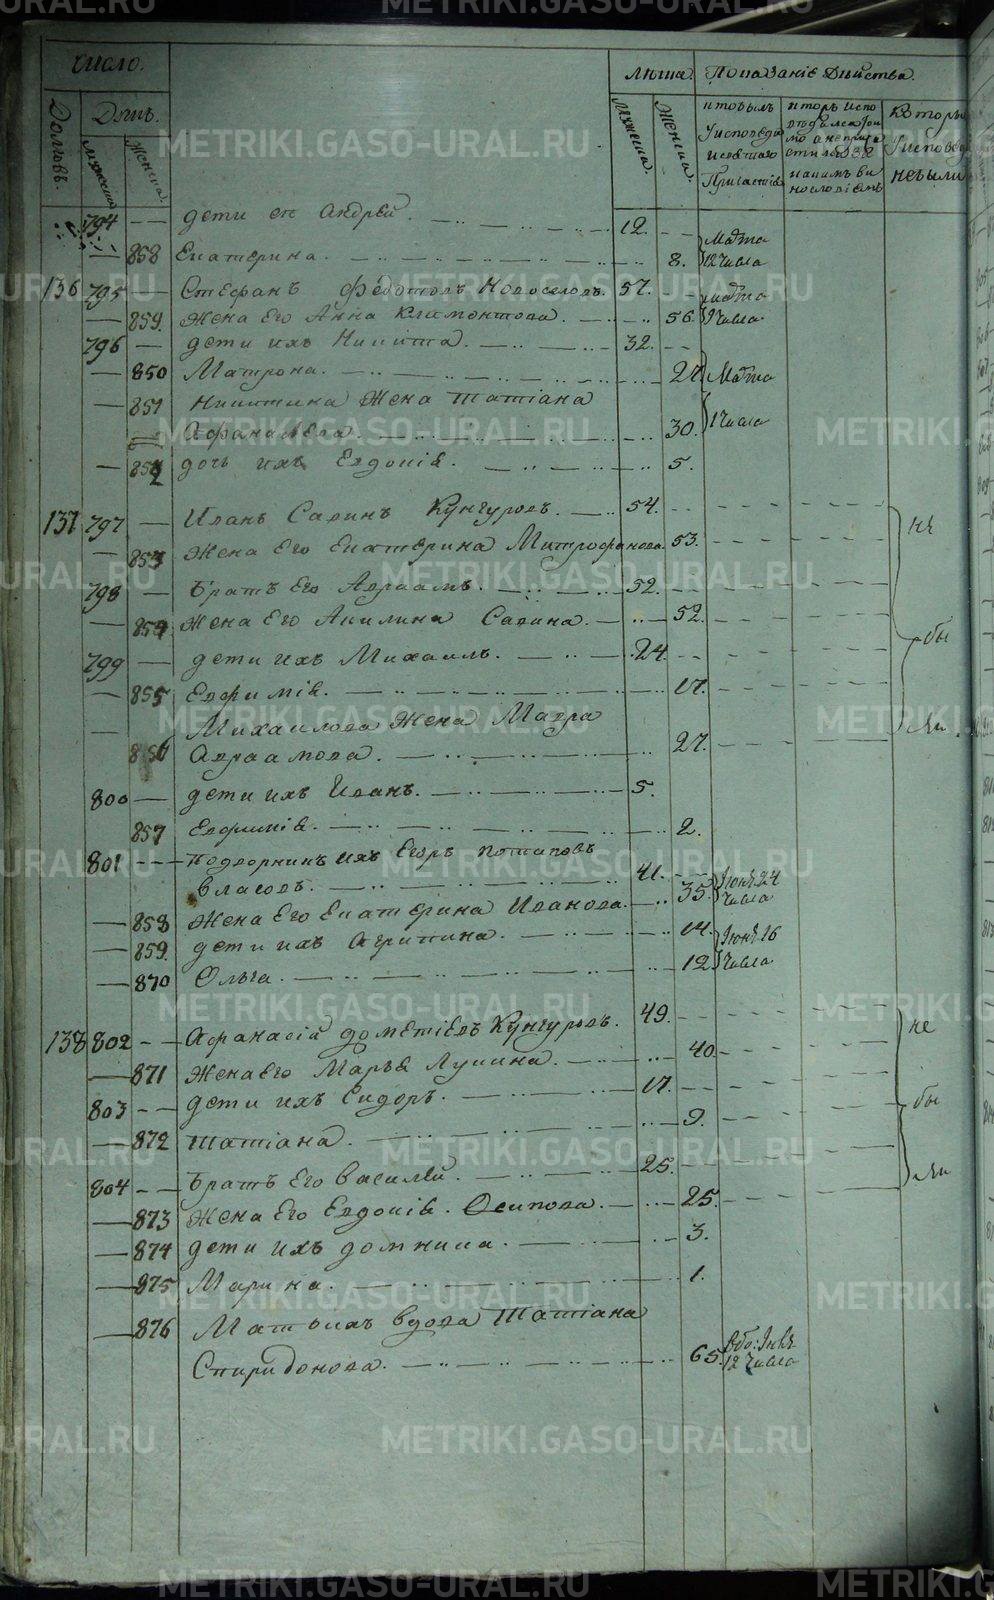 число. Лѣта. Показаніе Дѣйства.
Домовъ. Душъ. Мужеска. Женска. Мужеска. Женска.
794 — дети ея Андрей. 12.
— 858 Екатерина. 8. Марта 12 числа
136 795 — Стефанъ Федотовъ Новоселовъ. 57. марта
— 859. Жена Его Анна Климонтова. 56. числа.
796 — дети ихъ Никита. 32.
— 850 Матрона. 27. Марта
— 851 Никитина Жена Татiана
Афанасьева. 30. 1 числа
— 852 дочь ихъ Евдокiя. 5.
137 797 — Иванъ Савинъ Кунгуровъ. 54. не
— 853 Жена Его Екатерина Митрофанова. 53.
798 — Братъ Его Авраамъ. 52.
— 854 Жена Его Акилина Савина. 52. бы
799 — дети ихъ Михаилъ. 24.
— 855 Евфимiя. 17.
— Михаилова Жена Мавра ли.
856 Авраамова. 27.
800 — дети ихъ Иванъ. 5.
857 Евфимiя. 2.
801 — Подворникъ ихъ Егоръ Потаповъ
Власовъ. 41.
— 858 Жена Его Екатерина Иванова. 35. Iюня 24 числа
— 859. дети ихъ Агрипина. 14. Iюня 16
— 870 Ольга. 12 числа
138 802 — Афанасiй дометiевъ Кунгуровъ. 49. не
— 871 Жена Его Марья Лукина. 40.
803 — дети ихъ Сидоръ. 17. бы
— 872 Татiана. 9.
804 — Братъ Его Василей. 25. ли
— 873 Жена Его Евдокiя. Осипова. 25.
— 874 дети ихъ домника. 3.
— 875 Марина. 1.
— 876 Мать ихъ вдова Татiана
Спиридонова. 65. 12 числа
METRIKI.GASO-URAL.RU